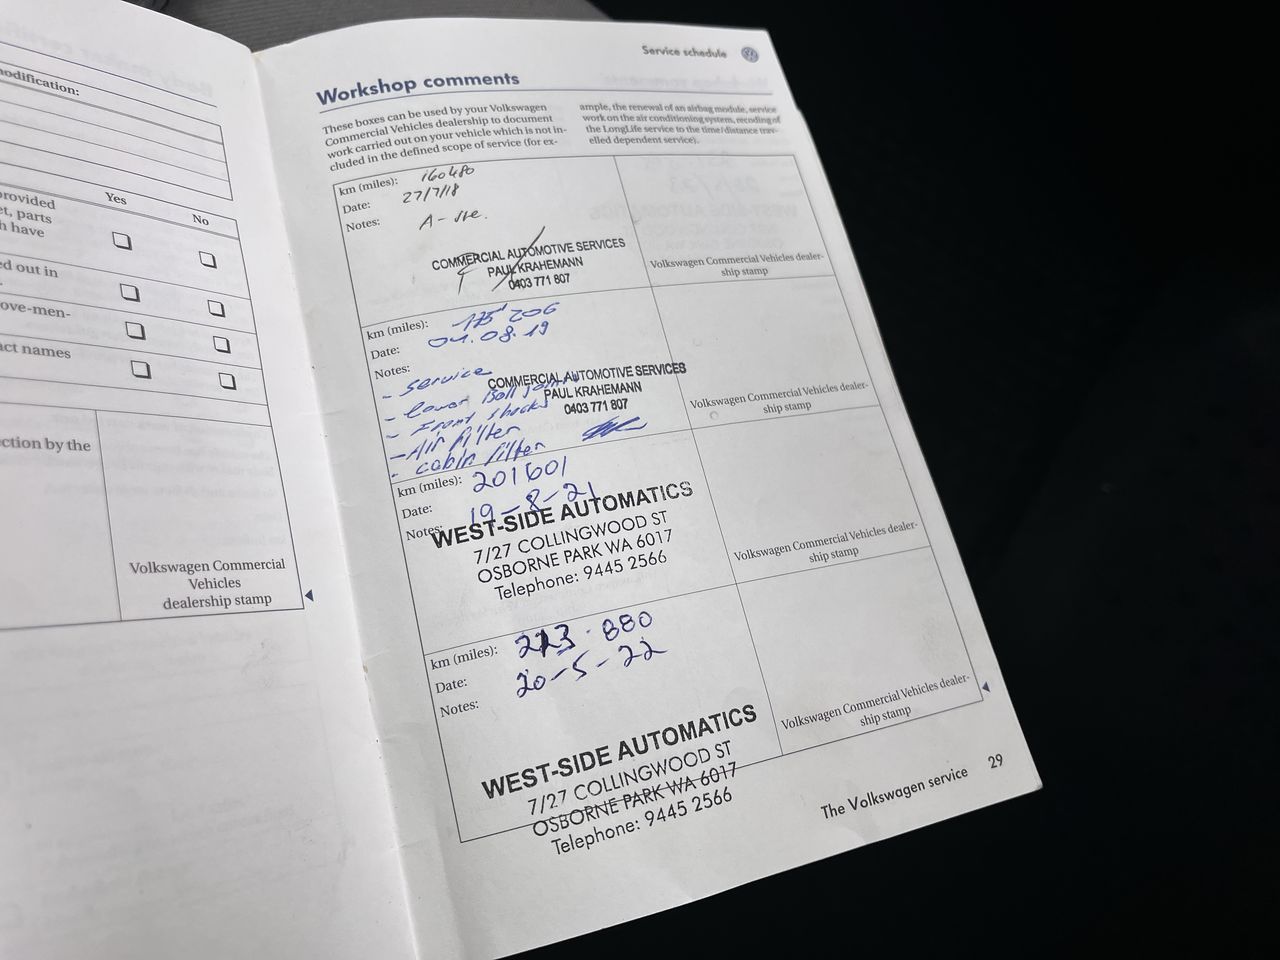 odification:
Yes
No
provided
et, parts
h have
ed out in
ove-men-
act names
ction by the
Volkswagen Commercial
Vehicles
dealership stamp
Service schedule
Workshop comments
These boxes can be used by your Volkswagen
Commercial Vehicles dealership to document
work carried out on your vehicle which is not in-
cluded in the defined scope of service (for ex-
ample, the renewal of an airbag module, service
work on the air conditioning system, recoding of
the LongLife service to the time/distance trav-
elled dependent service).
km (miles): 160480
Date: 27/7/18
Notes:
COMMERCIAL AUTOMOTIVE SERVICES
PAUL KRAHEMANN
0403 771 807
Volkswagen Commercial Vehicles dealer-
ship stamp
km (miles): 175'206
Date: 01.08.19
Notes:
- service
- Lower Ball joint
- Front shocks
- Air filter
- cabin filter
COMMERCIAL AUTOMOTIVE SERVICES
PAUL KRAHEMANN
0403 771 807
Volkswagen Commercial Vehicles dealer-
ship stamp
km (miles): 201601
Date: 19-8-21
Notes:
WEST-SIDE AUTOMATICS
7/27 COLLINGWOOD ST
OSBORNE PARK WA 6017
Telephone: 9445 2566
Volkswagen Commercial Vehicles dealer-
ship stamp
km (miles): 213.880
Date: 20-5-22
Notes:
WEST-SIDE AUTOMATICS
7/27 COLLINGWOOD ST
OSBORNE PARK WA 6017
Telephone: 9445 2566
Volkswagen Commercial Vehicles dealer-
ship stamp
The Volkswagen service 29